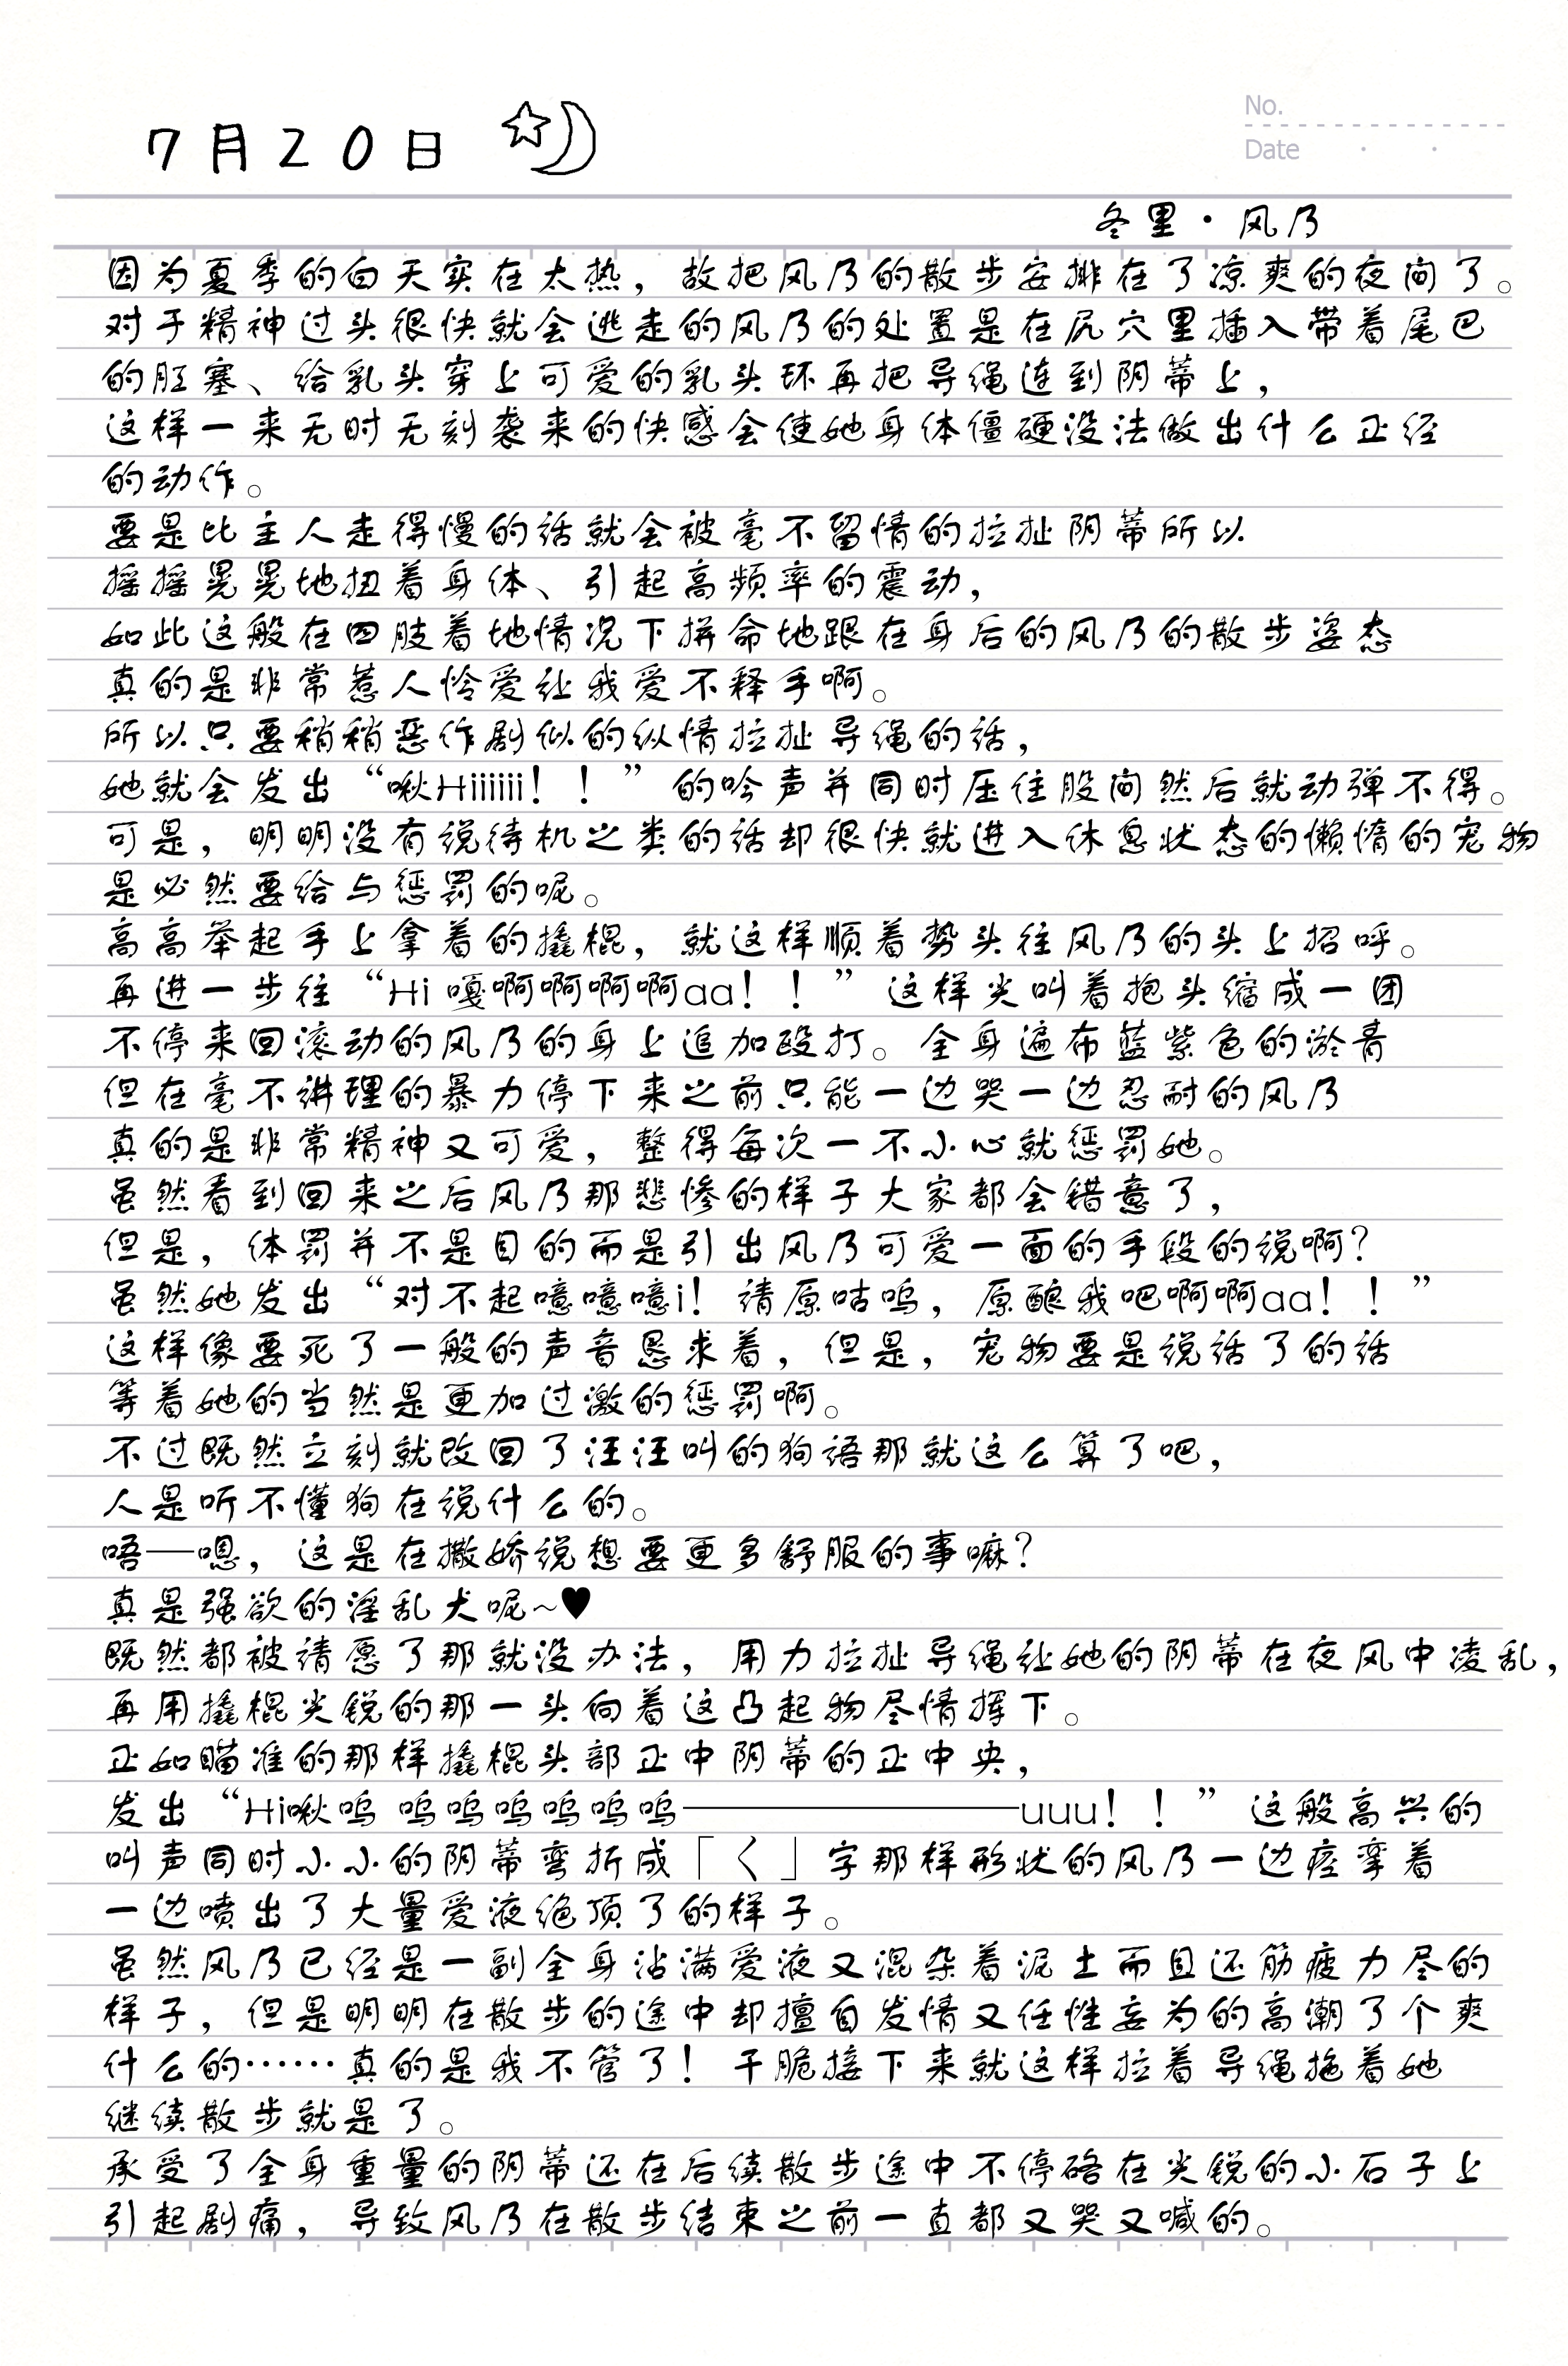 7月20日
No.
Date
冬里·风乃
因为夏季的白天实在太热，故把风乃的散步安排在了凉爽的夜间了。
对于精神过头很快就会逃走的风乃的处置是在尻穴里插入带着尾巴
的肛塞、给乳头穿上可爱的乳头环再把导绳连到阴蒂上，
这样一来无时无刻袭来的快感会使她身体僵硬没法做出什么正经
的动作。
要是比主人走得慢的话就会被毫不留情的拉扯阴蒂所以
摇摇晃晃地扭着身体、引起高频率的震动，
如此这般在四肢着地情况下拼命地跟在身后的风乃的散步姿态
真的是非常惹人怜爱让我爱不释手啊。
所以只要稍稍恶作剧似的纵情拉扯导绳的话，
她就会发出“啾Hiiiiii！！”的吟声并同时压住股间然后就动弹不得。
可是，明明没有说待机之类的话却很快就进入休息状态的懒惰的宠物
是必然要给与惩罚的呢。
高高举起手上拿着的撬棍，就这样顺着势头往风乃的头上招呼。
再进一步往“Hi嘎啊啊啊啊aa！！”这样尖叫着抱头缩成一团
不停来回滚动的风乃的身上追加殴打。全身遍布蓝紫色的淤青
但在毫不讲理的暴力停下来之前只能一边哭一边忍耐的风乃
真的是非常精神又可爱，整得每次一不小心就惩罚她。
虽然看到回来之后风乃那悲惨的样子大家都会错意了，
但是，体罚并不是目的而是引出风乃可爱一面的手段的说啊？
虽然她发出“对不起噫噫噫i！请原咕呜，原酿我吧啊啊aa！！”
这样像要死了一般的声音恳求着，但是，宠物要是说话了的话
等着她的当然是更加过激的惩罚啊。
不过既然立刻就改回了汪汪叫的狗语那就这么算了吧，
人是听不懂狗在说什么的。
唔——嗯，这是在撒娇说想要更多舒服的事嘛？
真是强欲的淫乱犬呢~♥
既然都被请愿了那就没办法，用力拉扯导绳让她的阴蒂在夜风中凌乱，
再用撬棍尖锐的那一头向着这凸起物尽情挥下。
正如瞄准的那样撬棍头部正中阴蒂的正中央，
发出“Hi啾呜 呜呜呜呜呜呜———————uuu！！”这般高兴的
叫声同时小小的阴蒂弯折成「く」字那样形状的风乃一边痉挛着
一边喷出了大量爱液绝顶了的样子。
虽然风乃已经是一副全身沾满爱液又混杂着泥土而且还筋疲力尽的
样子，但是明明在散步的途中却擅自发情又任性妄为的高潮了个爽
什么的……真的是我不管了！干脆接下来就这样拉着导绳拖着她
继续散步就是了。
承受了全身重量的阴蒂还在后续散步途中不停硌在尖锐的小石子上
引起剧痛，导致风乃在散步结束之前一直都又哭又喊的。